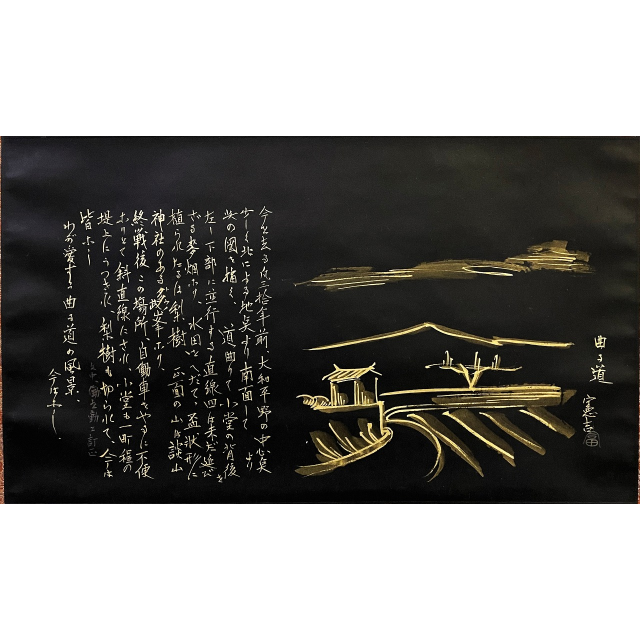 曲る道
憲吉
富
今を去る凡三拾年前、大和平野の中心点より
少しく北による地点より南面して
此の図を描く、道曲りて小堂の背後を
左し下部に並行する直線四
ざる麦畑なり、水田をへだてゝ盃状形に
植られたるは梨樹 正面の山は談山
神社のある多武峯なり、
終戦後この場所、自動車をやるに不便
なりとて斜直線にされ 小堂も一町程の
堤上にうつされ、梨樹も切られて、今は
皆なし
わが愛する曲る道の風景、
今はなし